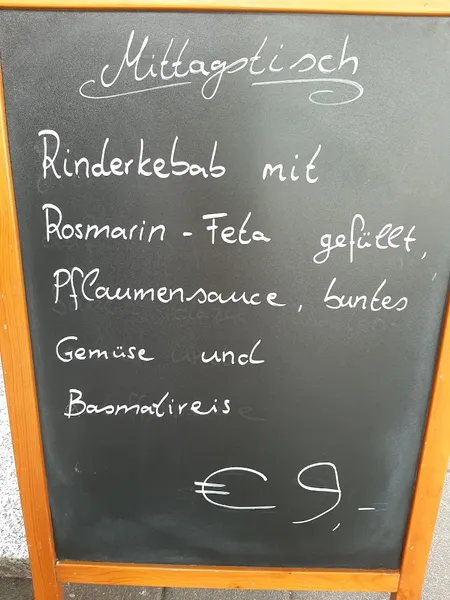 Mittagstisch
Rinderkebab mit
Rosmarin - Feta gefüllt,
Pflaumensauce, buntes
Gemüse und
Basmatireis
€ 9,-